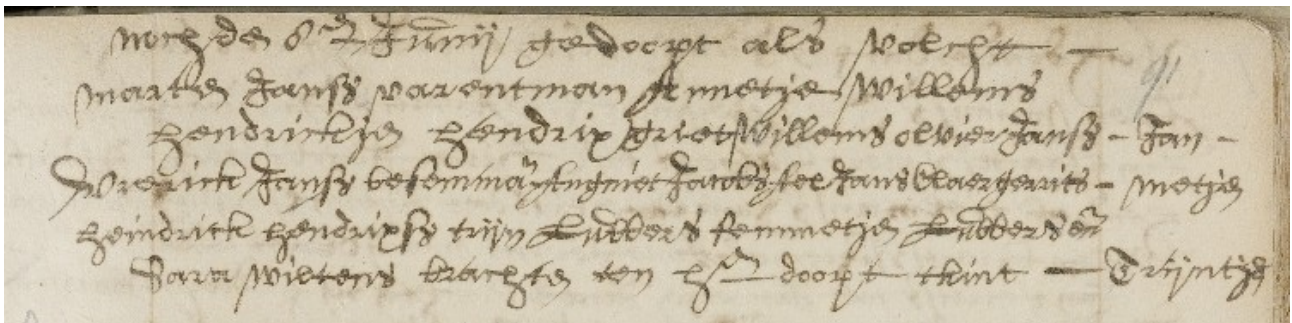 noch den 6en Junij gedoopt als volcht —
marten Janss varentman Annetje Willems
hendrickjen hendrix griet Willems olvier Janss - Jan -
Wrerick Janss besemmaker Jacobs Jans Claer gerrits - metjen
heindrick hendrixss trijn Lubbers femmetjen Lubbers en
Sara Wiltens brachten ten hen doopt tkint — Trijntje
91